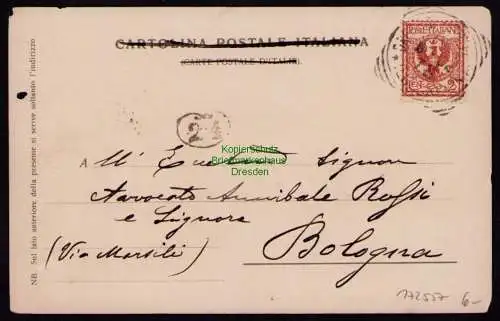 CARTOLINA POSTALE ITALIANA
(CARTE POSTALE D'ITALIE)
POSTE ITALIANE
24
KopierSchutz
Briefmarkenhaus
Dresden
A
All' Signor
Avvocato Annibale Rossi
e Signora
(Via Marsili) Bologna
NB. Sul lato anteriore della presente si scrive soltanto l'indirizzo
172557 6-